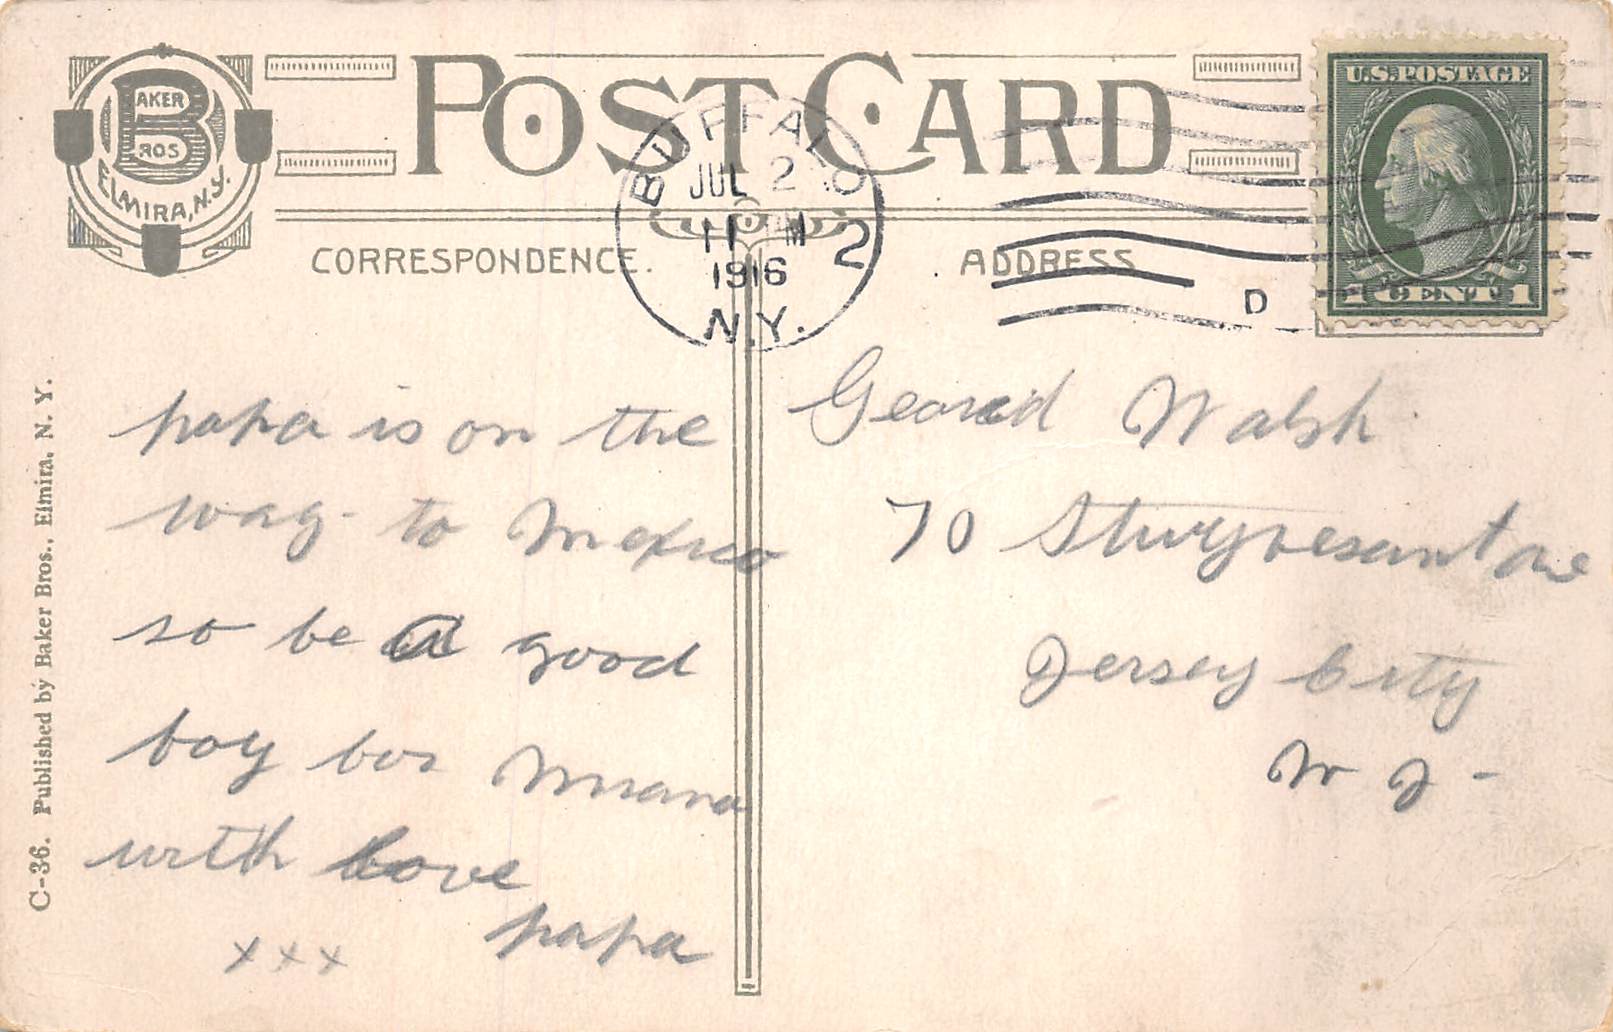 BAKER
BROS
ELMIRA, N.Y.
POST CARD
BUFFALO
JUL 2
11 M
1916
N.Y.
2
D
U.S. POSTAGE
1 CENT 1
CORRESPONDENCE.
ADDRESS
papa is on the
way to Mexico
so be a good
boy for Mama
with love
papa
xxx
Gearard Walsh
70 Sturyvesant ave
Jersey City
N J -
C-36. Published by Baker Bros., Elmira, N. Y.